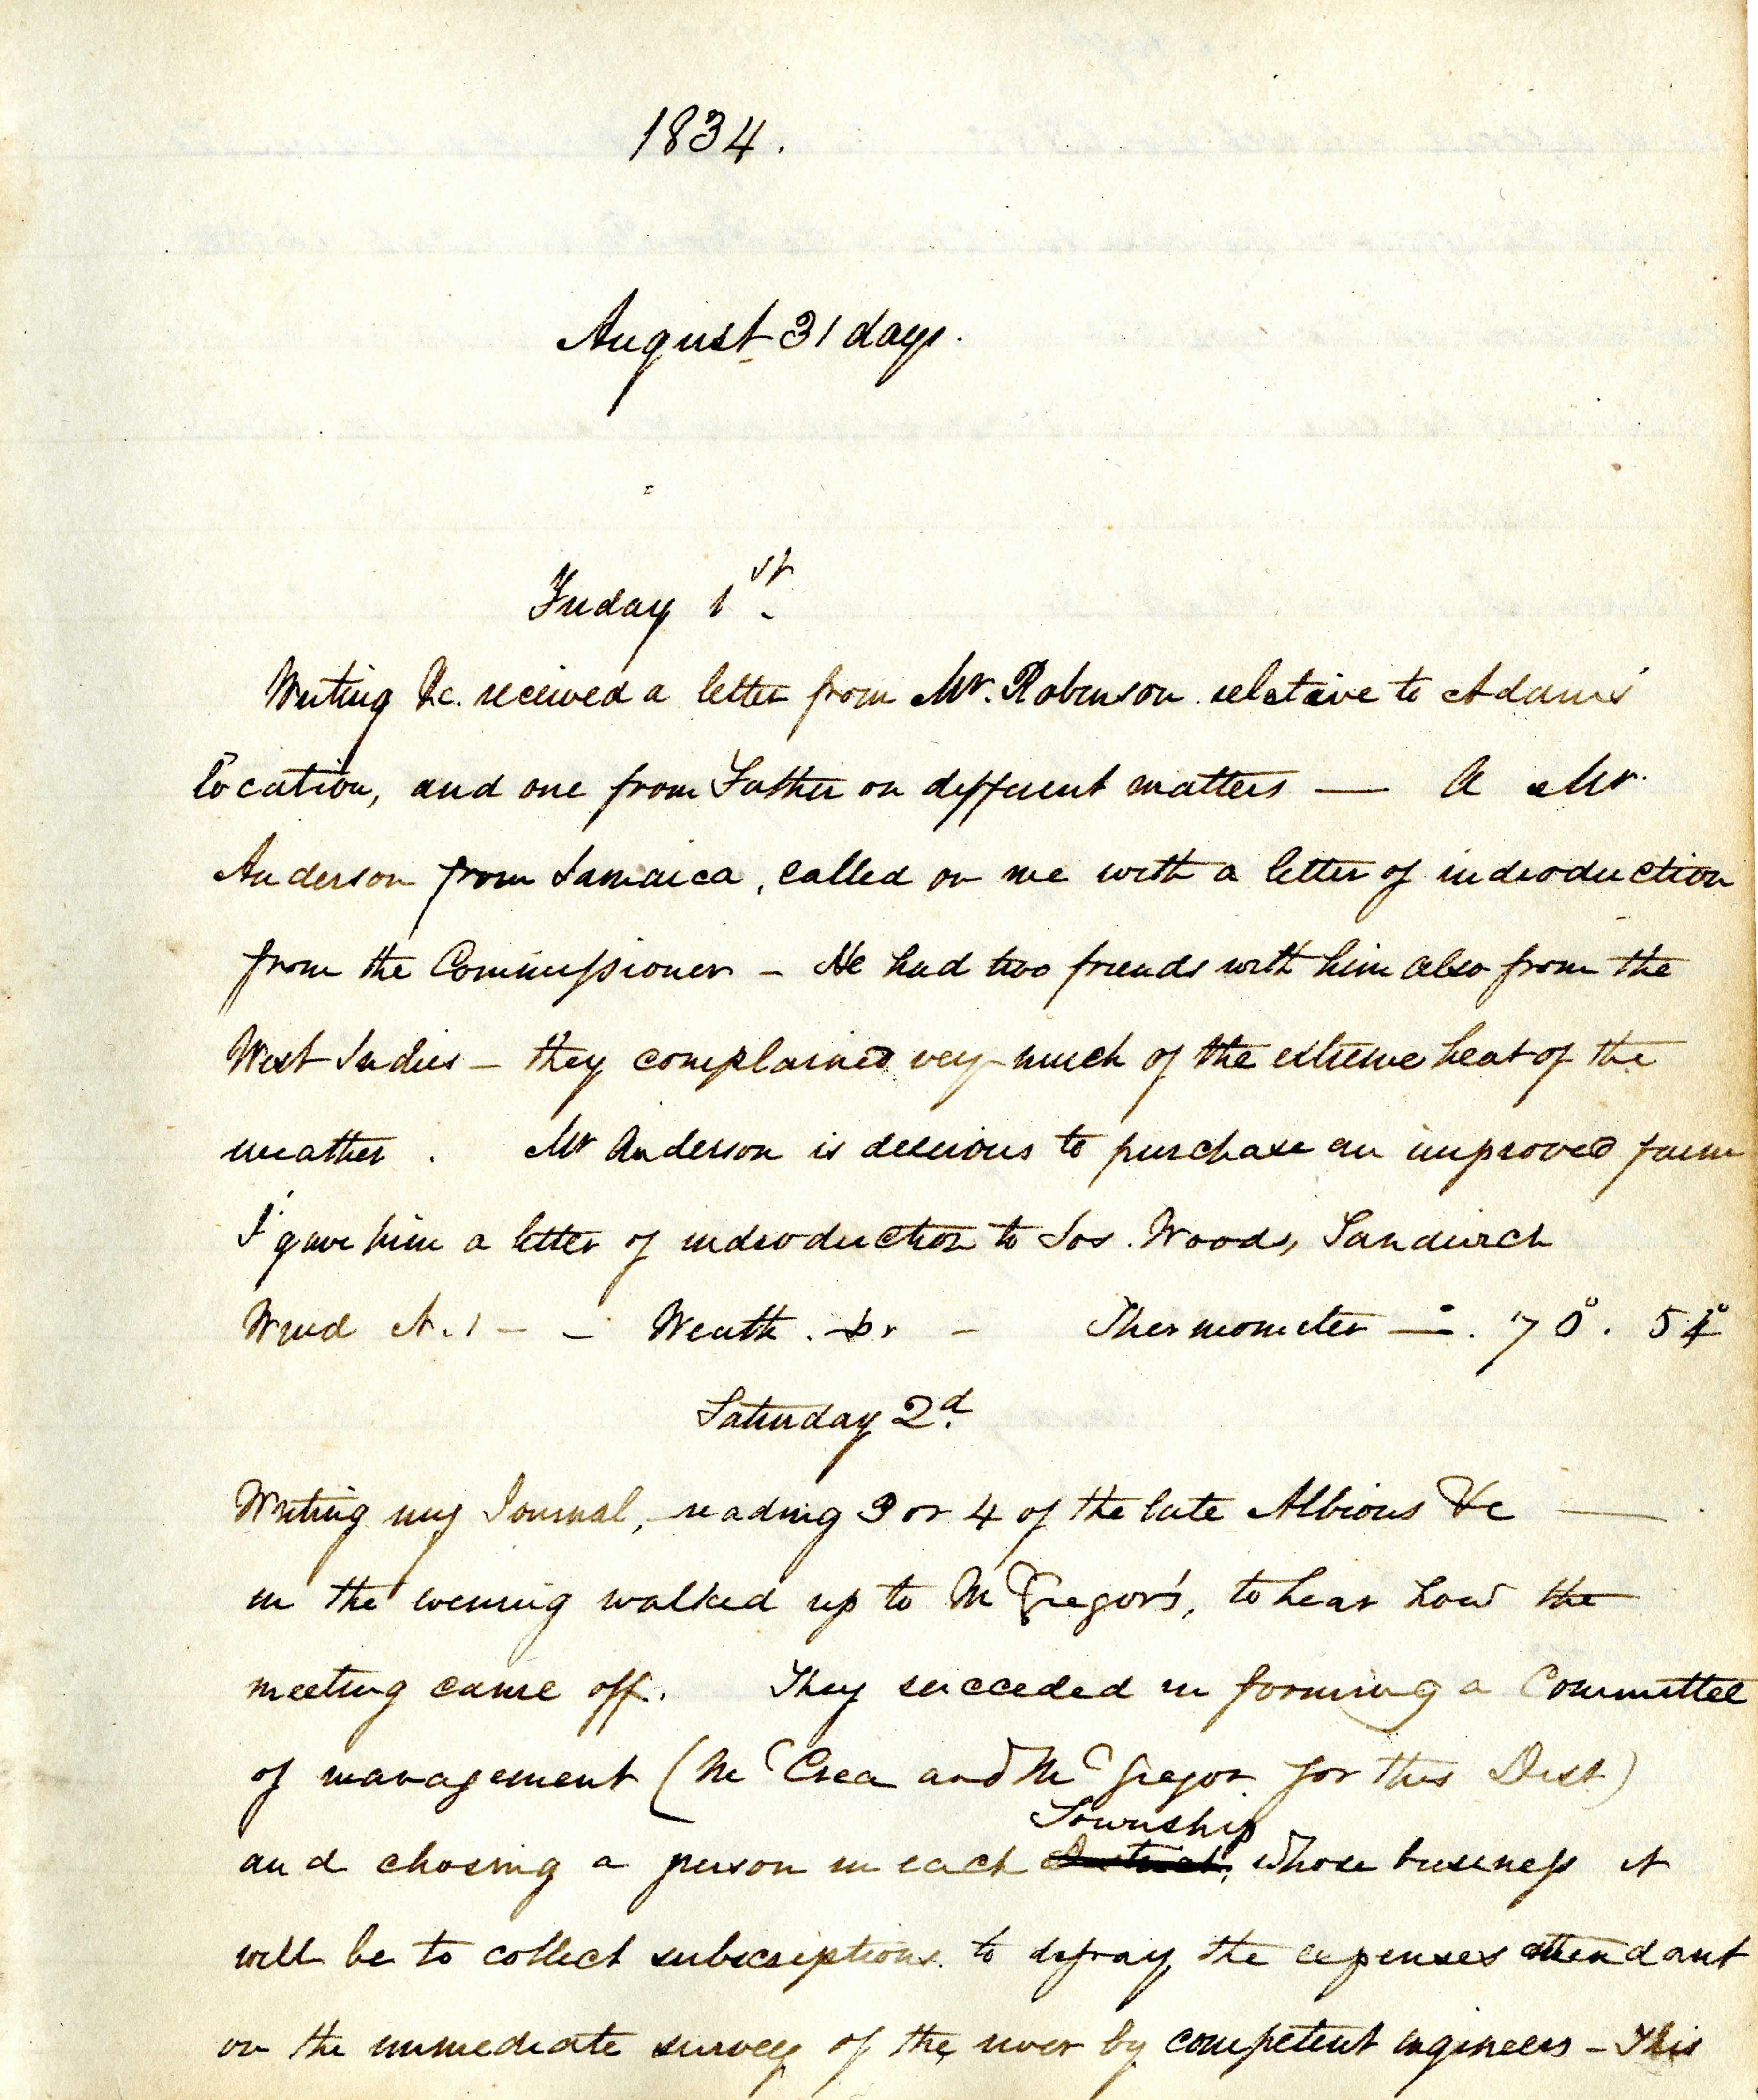 1834.
August 31 days.
Friday 1st.
Writing &c. received a letter from Mr. Robinson relative to Adams'
location, and one from Father on different matters — A Mr.
Anderson from Jamaica, called on me with a letter of indroduction
from the Commissioner - He had two friends with him also from the
West Indies - they complained very much of the extreme heat of the
weather. Mr Anderson is desirious to purchase an improved farm
I gave him a letter of indroduction to Jos. Woods, Sandwich
Wind N. 1 - - Weath. br - Thermometer 70°. 54°
Saturday 2d.
Writing my Journal, reading 3 or 4 of the late Albions &c —
in the evening walked up to McGregor's, to hear how the
meeting came off. They succeded in forming a Committee
of management (McCrea and McGregor for this Dist)
Township
and chosing a person in each District, whose business it
will be to collect subscriptions to defray the expenses attendant
on the immediate survey of the river by competent engineers - This